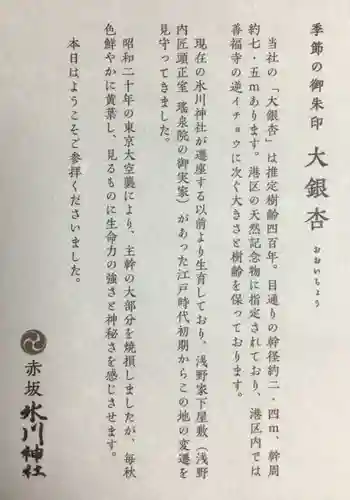 季節の御朱印 大銀杏
おおいちょう
当社の「大銀杏」は推定樹齢四百年。目通りの幹径約二・四m、幹周
約七・五mあります。港区の天然記念物に指定されており、港区内では
善福寺の逆イチョウに次ぐ大きさと樹齢を保っております。
現在の氷川神社が遷座する以前より生育しており、浅野家下屋敷（浅野
内匠頭正室 瑤泉院の御実家）があった江戸時代初期からこの地の変遷を
見守ってきました。
昭和二十年の東京大空襲により、主幹の大部分を焼損しましたが、毎秋
色鮮やかに黄葉し、見るものに生命力の強さと神秘さを感じさせます。
本日はようこそご参拝くださいました。
赤坂 氷川神社